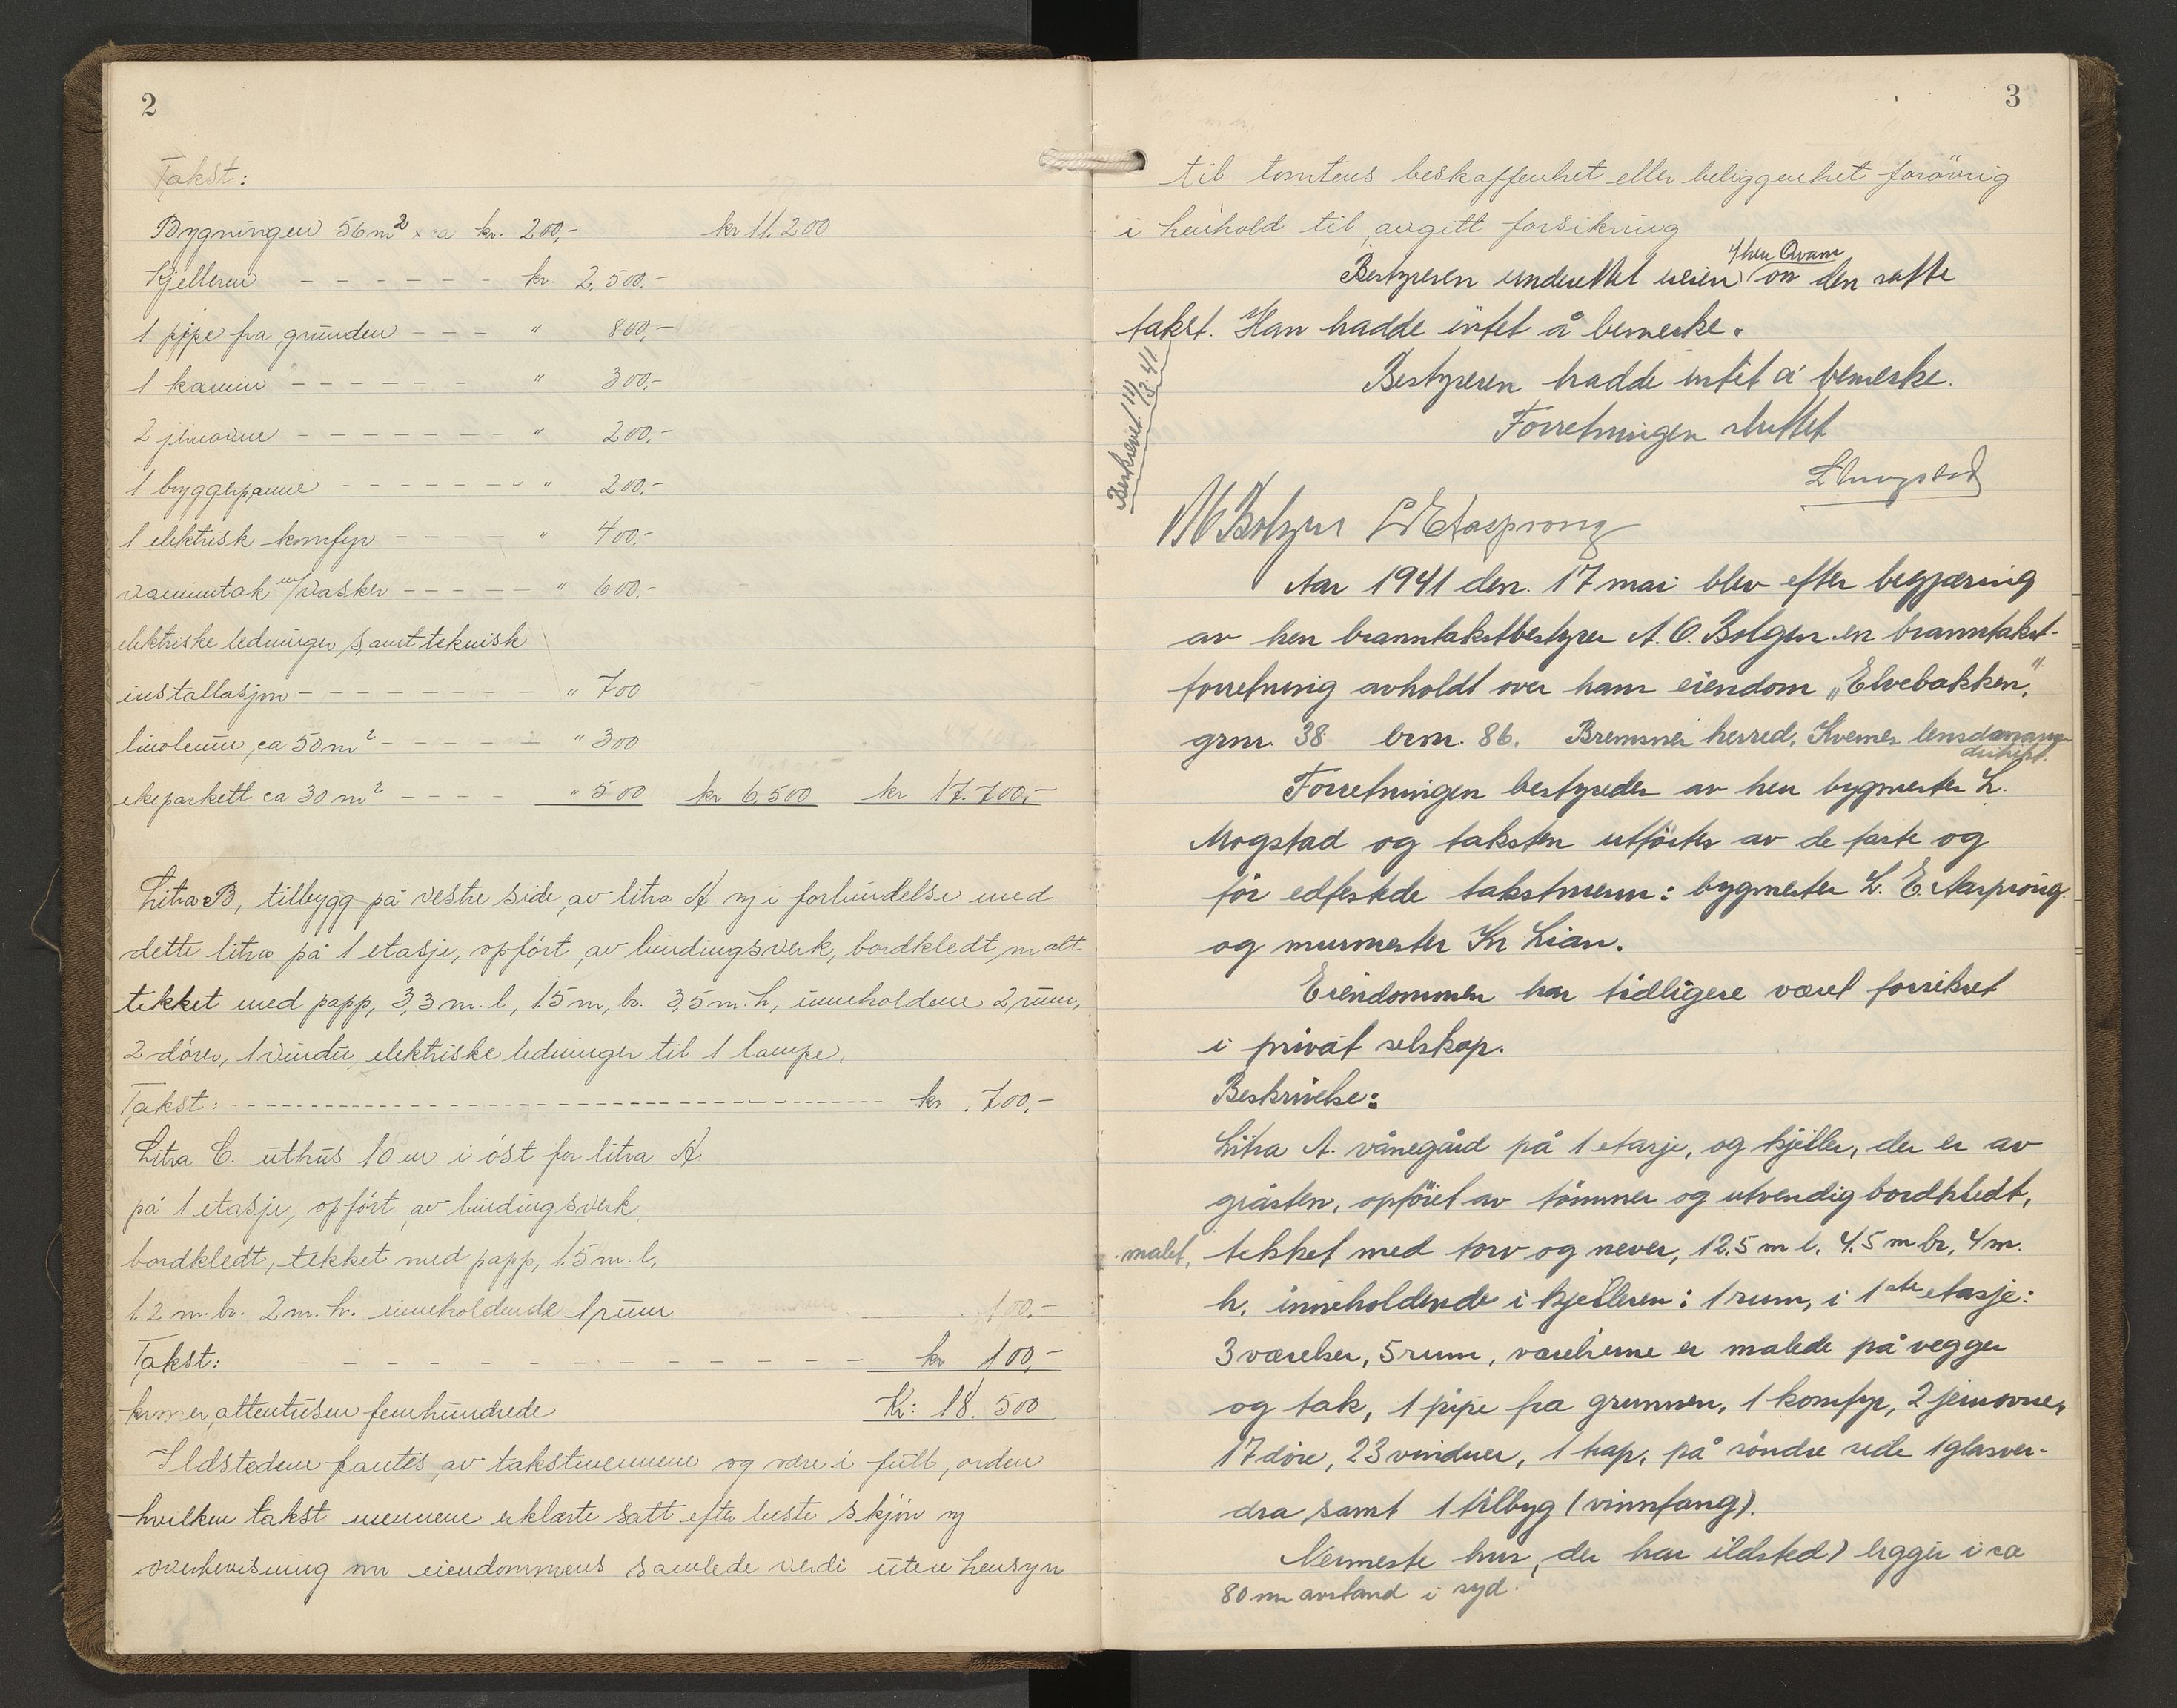 2
Takst:
Bygningen 56 m² x a kr. 200,- kr 11.200
Kjelleren - - - - - - - kr. 2,500.-
1 pipe fra grunden - - - " 800,-
1 kamin - - - - - - " 300,-
2 jernovne - - - - - - - " 200,-
1 bryggepanne - - - - - - - " 200,-
1 elektrisk komfyr - - - - " 400.-
vanninntak m/vasker - - - - - " 600.-
elektriske ledninger, samt teknisk
installasjon - - - - - - - - " 700
linoleum, ca 50 m² - - - - - - " 300
ekeparkett ca 30 m² - - - - " 500 kr 6,500 kr 17.700,-
Litra B, tilbygg på vestre side av litra A og i forbindelse med
dette litra på 1 etasje, opført av bindingsverk, bordkledt, malt
tekket med papp, 3,3 m. l, 1.5 m, br. 3,5 m. h, inneholdene 2 rum,
2 dører, 1 vindu, elektriske ledninger til 1 lampe.
Takst: - - - - - - - - - - - - - - - - - kr. 700,-
Litra C. uthus 10 m i øst for litra A
på 1 etasje, opført av bindingsverk,
bordkledt, tekket med papp, 1.5 m. l,
1.2 m. br. 2 m. h. inneholdende 1 rum 100.-
Takst: - - - - - - - - - - - - - - - kr 100,-
kroner, attentusen femhundrede Kr: 18.500
Ildstedene fantes av takstmennene og være i full, orden
hvilken takst mennene erklærte satt efter beste skjøn og
overbevisning om eiendommens samlede verdi uten hensyn
3
til tomtens beskaffenhet eller beliggenhet forøvrig
i henhold til avgitt forsikring
Bestyreren underrettet eieren v/herr Qvam om den satte
takst. Han hadde intet å bemerke.
Bestyreren hadde intet å bemerke.
Forretningen sluttet
Beskrevet 11/3.41
L Mogstad
L E Aasprong
Aar 1941 den. 17 mai blev efter begjæring
av herr branntakstbestyrer A. O. Bolgen en branntakst-
forretning avholdt over hans eiendom „Elvebakken",
grnr. 38 brnr. 86. Bremsnes herred, Kvernes lensdmanns-
distrikt.
Forretningen bestyredes av herr bygmester L.
Mogstad og taksten utførtes av de faste og
før edfestede takstmenn: bygmester L. E. Aasprong
og murmester Kr Lian.
Eiendommen har tidligere været forsikret
i privat selskap.
Beskrivelse:
Litra A. vånegård på 1 etasje, og kjeller, der er av
gråsten, opføret av tømmer og utvendig bordkledt,
malet, tekket med torv og never, 12.5 m l. 4.5 m br, 4 m.
h. inneholdende i kjelleren: 1 rum, i 1ste etasje:
3 værelser, 5 rum, værelserne er malede på vegger
og tak, 1 pipe fra grunnen, 1 komfyr, 2 jernovne,
17 døre, 23 vinduer, 1 trap, på søndre side 1 glasver-
dra, samt 1 tilbyg (vinnfang).
Nermeste hus, der har ildsted) ligger i ca
80 m avstand i syd.